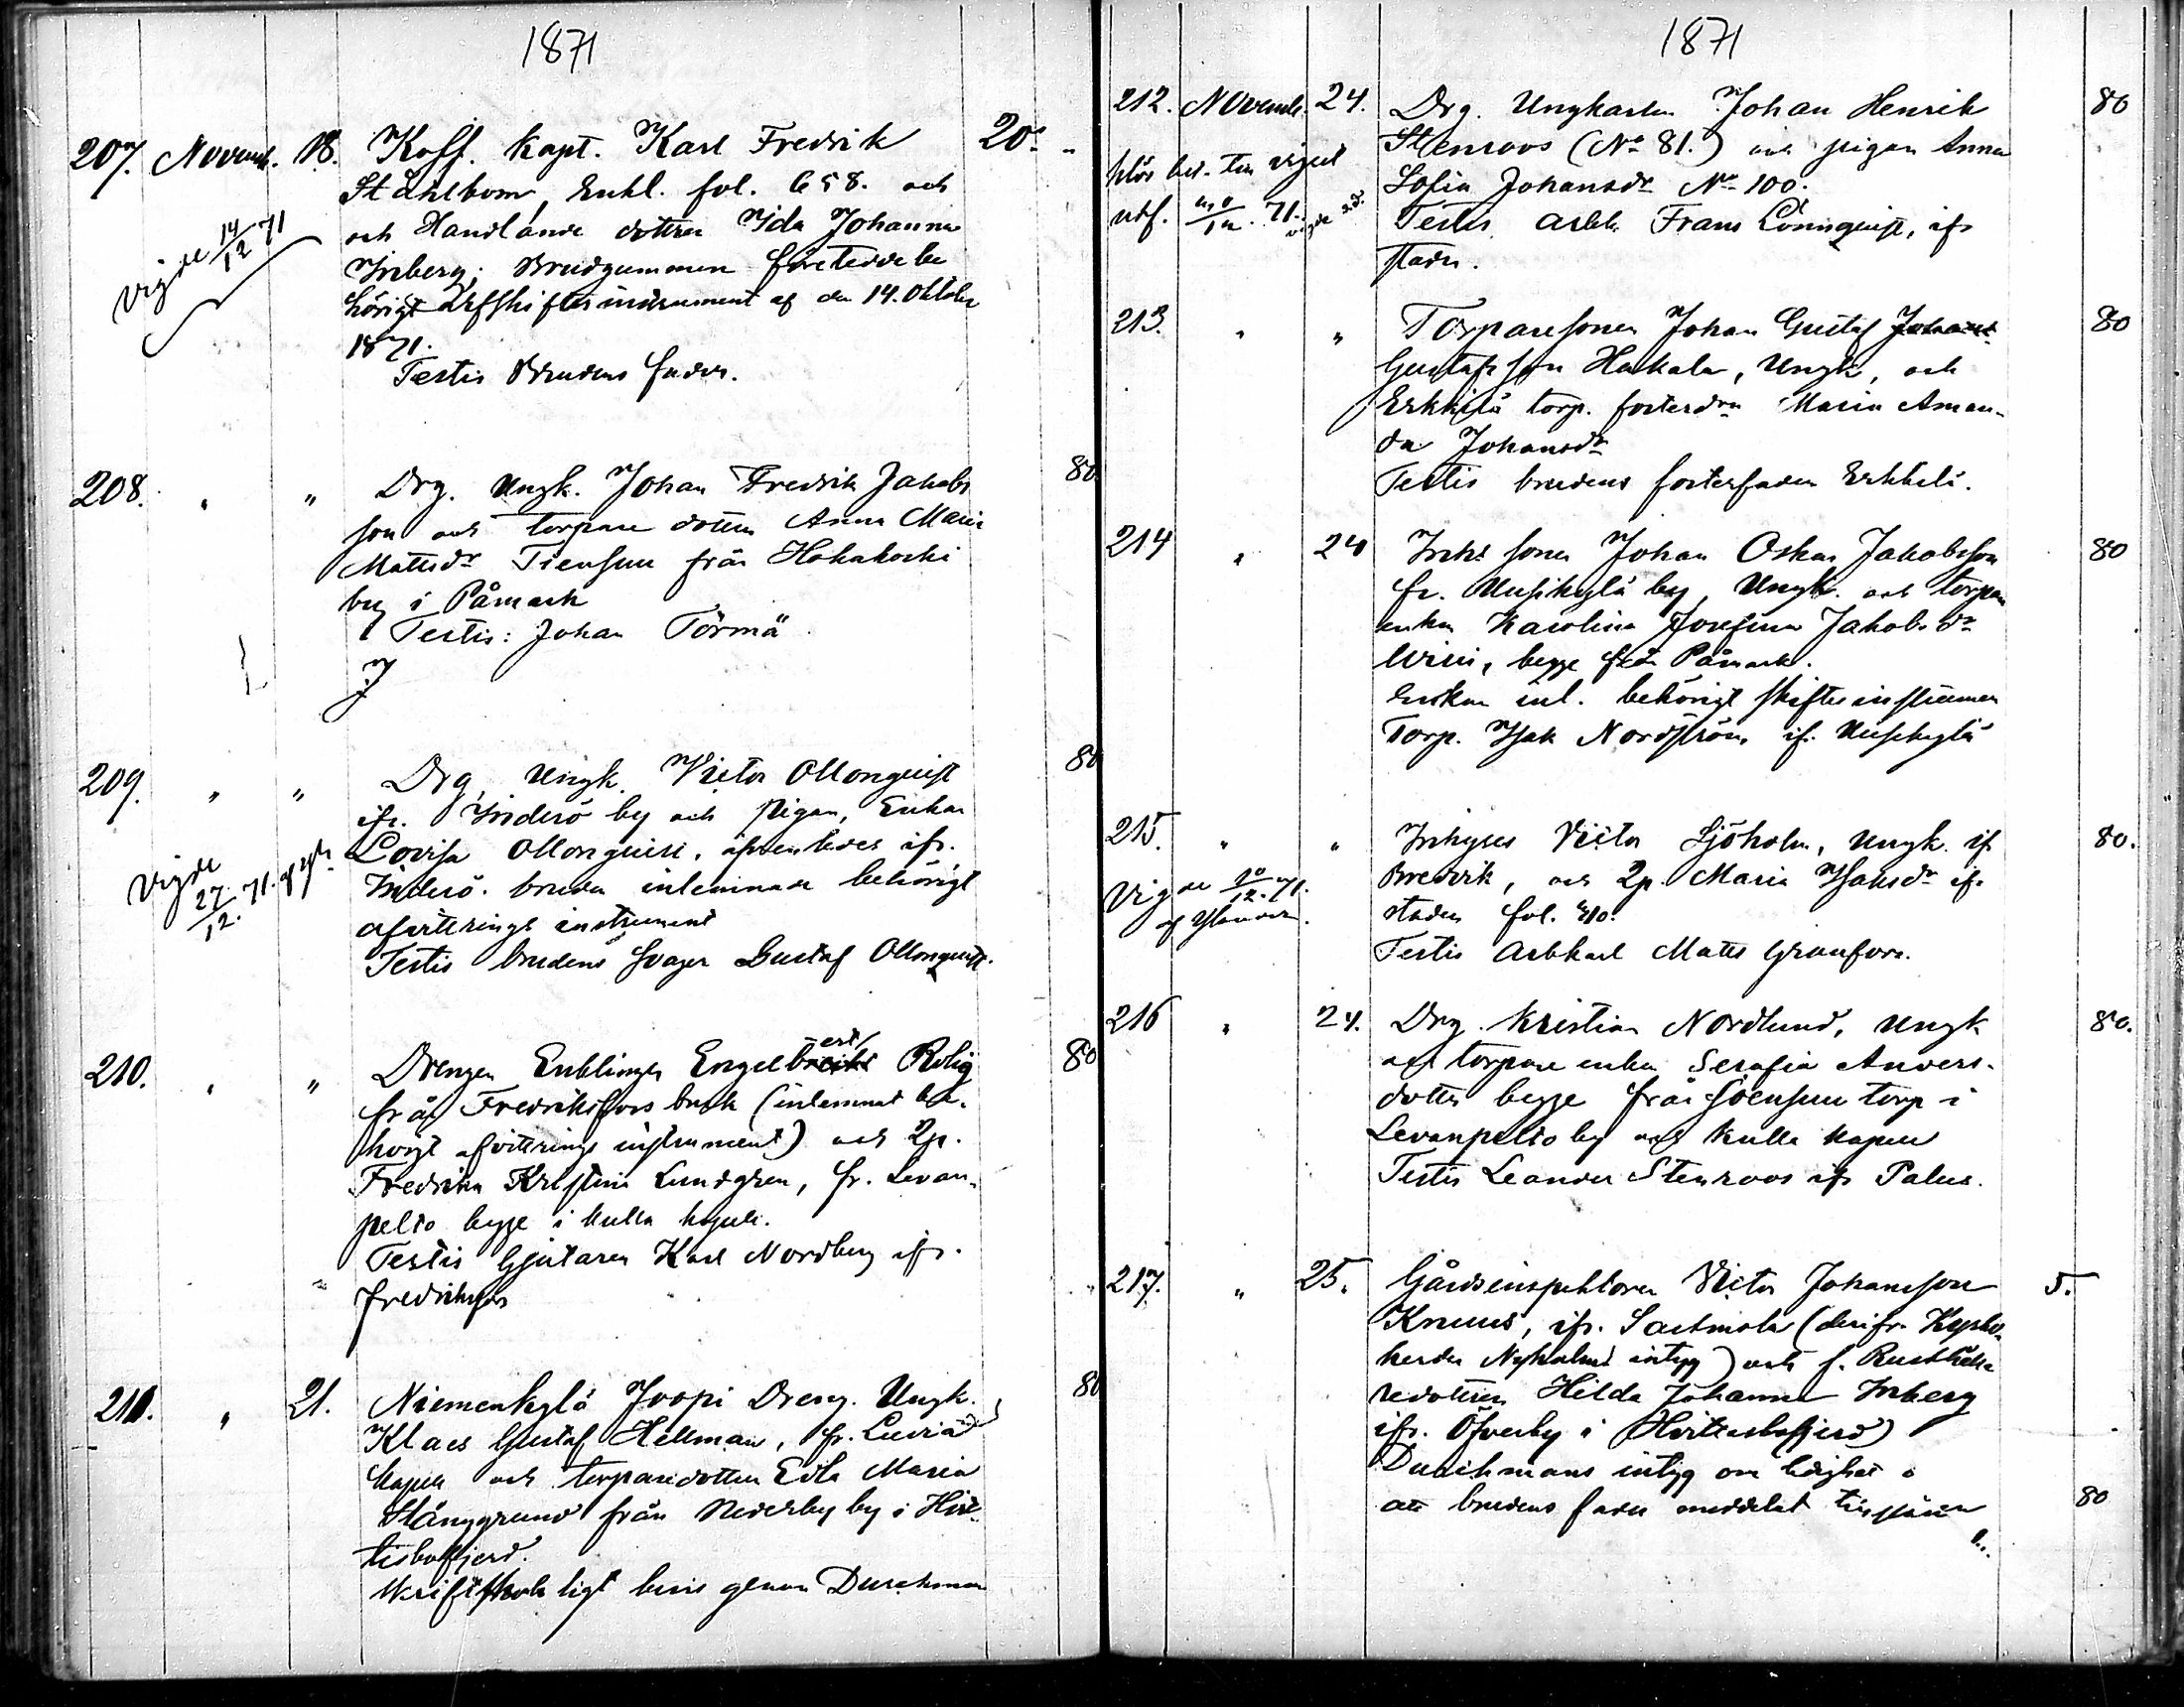 1871
207. Novemb. 18. Koff. Kapt. Karl Fredrik 20. "
Ståhlbom, Enkl. fol. 658. och
och Handlande dottren Ida Johanna
Inberg; Brudgummen företedde be
hörigt arfskiftes instrument af den 14. Oktober
1871.
Testis Brudens fader.
Vigde 14/12 71
208. " " Drg. Ungk. Johan Fredrik Jakobs 80.
son och torpare dottren Anna Maria
Mattsdr Tiensuu från Hakakoski
by i Påmark
Testis: Johan Törmä
209. " " Drg. Ungk. Victor Ollonqvist 80
ifr. Inderö by och Pigan, Enkan
Lovisa Ollonqvist, äfvenledes ifr.
Inderö. bruden inlemnade behörigt
afvittrings instrument
Testis brudens svåger Gustaf Ollonqvist.
Vigde 27/12. 71.
210. " " Drengen Enklingen Engelbrekt ert Rolig 80
från Fredriksfors bruk (inlemnat be-
hörigt afvittrings instrument) och Qp.
Fredrika Kristina Lundgren, fr. Levan-
pelto begge i Kulla kapell.
Testis Gjutaren Karl Nordberg ifr.
Fredriksfors
211. " 21. Niemenkylä Joopi Dreng. Ungk. 80
Klaes Gustaf Hellman, fr. Luvia
kapell och torparedottren Edla Maria
Stånggrund från Nederby by i Hvit-
tisbofjerd.
Skriftskoleligt bevis genom Durchman
1871
212. Novemb. 24. Drg. Ungkarlen Johan Henrik 80
Stenroos (No 81.) och pigan Anna
Sofia Johansdr No 100.
Testis Arbk. Frans Lönnqvist, ifr
staden.
utf. 71.
213. " " Torparesonen Johan Gustaf 80
Gustafsson Hakala, Ungk, och
Erkkilä torp. fosterdrn Maria Aman-
da Johansdr
Testis brudens fosterfader Erkkilä.
214 " 24 Inhs sonen Johan Oskar Jakobsson 80
fr. Uusikylä by, Ungk. och torpare
enkan Karolina Josefina Jakobsdr
begge från Påmark.
Enkan inl. behörigt skiftesinstrumen
Torp. Isak Nordström if. Uusikylä
215. " " Inhyses Victor Sjöholm, Ungk. if 80.
Bredvik, och Qp. Maria Isaksdr if.
staden fol. 410.
Testis Arbkarl Matts Granfors.
Vigde 10/12. 71.
216 " 24. Drg. Kristian Nordlund, Ungk 80.
och torpare enkan Serafia Anders-
dotter begge från torp i
Levanpelto by och Kulla kapell
Testis Leander Stenroos ifr Palus.
217. " 25. Gårdsinspektoren Victor Johansson 5.
Knuus, ifr. Sastmola (derifr. Kyrko-
herden Nyholms intyg) och f. Rusthålla
redottren Hilda Johanna Inberg
ifr. Öfverby i Hvittisbofjerd)
Durchmans intyg om ledighet o
att brudens fader meddelat tillstånd 80